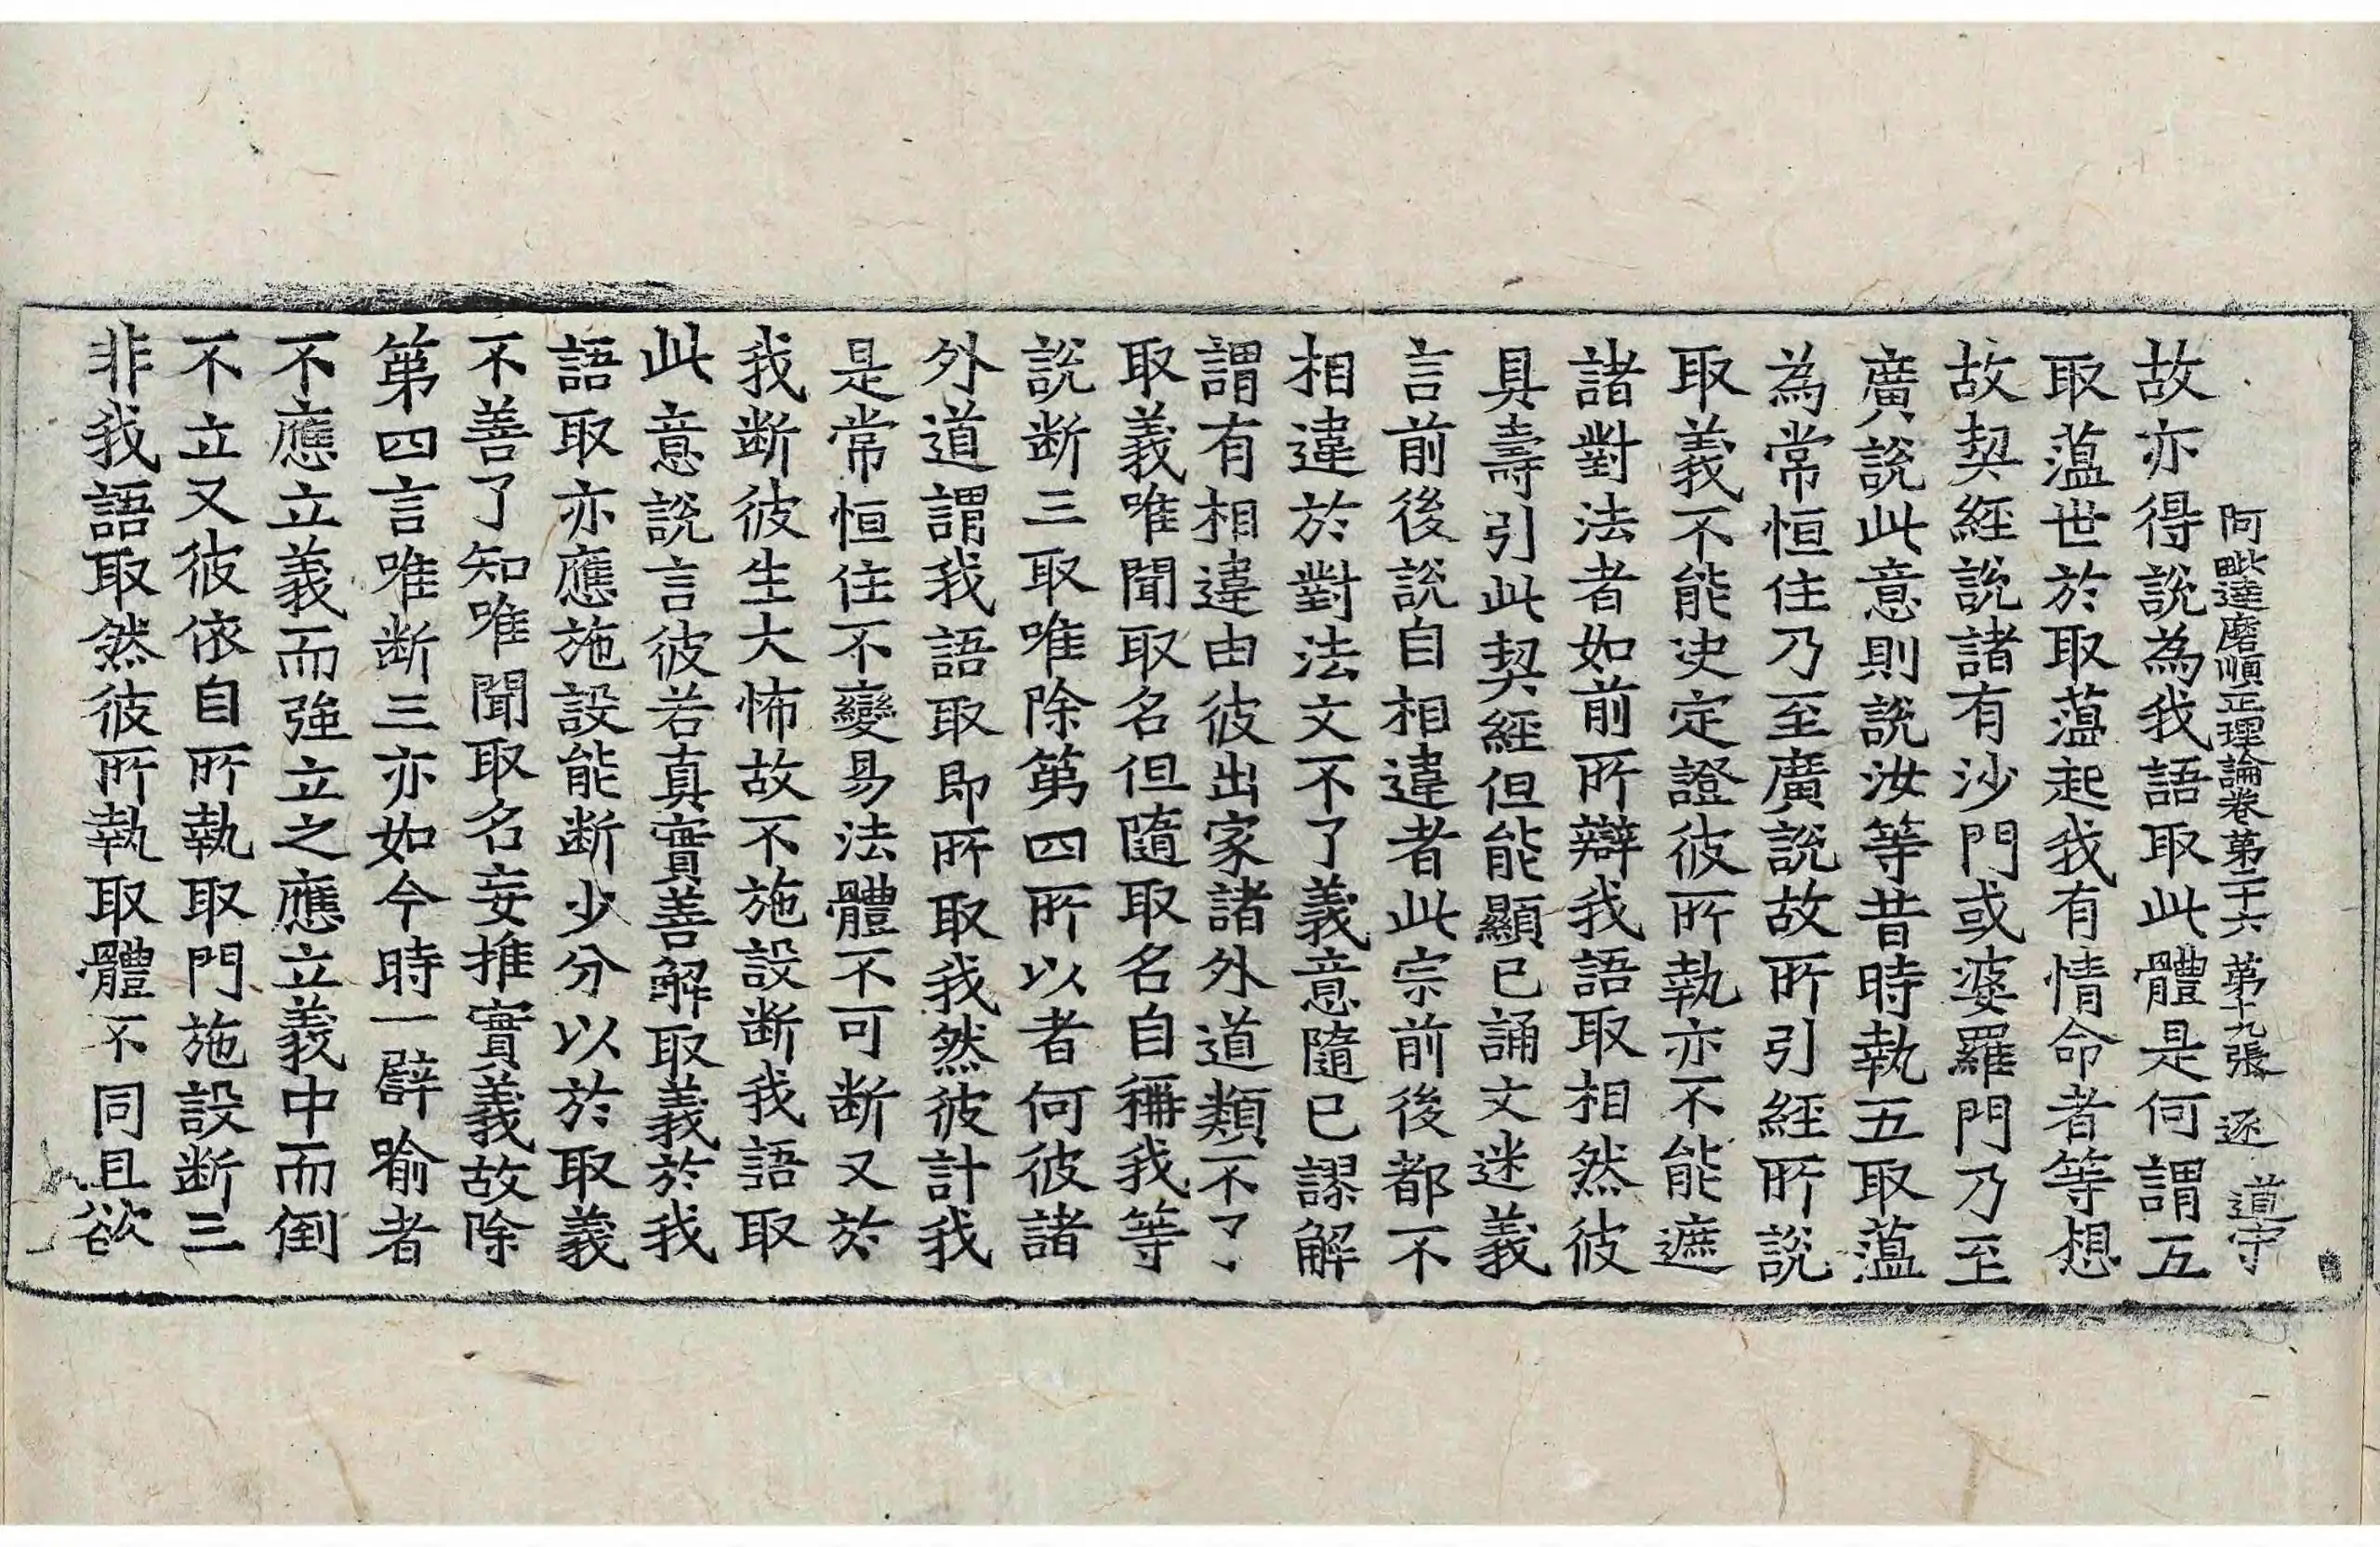 阿毗達磨順正理論卷第二十六 第十九張 逐 道守
故亦得說為我語取此體是何謂五
取藴世於取藴起我有情命者等想
故契經說諸有沙門或婆羅門乃至
廣說此意則說汝等昔時執五取藴
為常恒住乃至廣說故所引經所說
取義不能决定證彼所執亦不能遮
諸對法者如前所辯我語取相然彼
具壽引此契經但能顯已誦文迷義
言前後說自相違者此宗前後都不
相違於對法文不了義意隨已謬解
謂有相違由彼出家諸外道類不了
取義唯聞取名但隨取名自稱我等
說断三取唯除第四所以者何彼諸
外道謂我語取即所取我然彼計我
是常恒住不變易法體不可断又於
我断彼生大怖故不施設断我語取
此意說言彼若真實善解取義於我
語取亦應施設能断少分以於取義
不善了知唯聞取名妄推實義故除
第四言唯断三亦如今時一譬喻者
不應立義而強立之應立義中而倒
不立又彼依自所執取門施設断三
非我語取然彼所執取體不同且欲